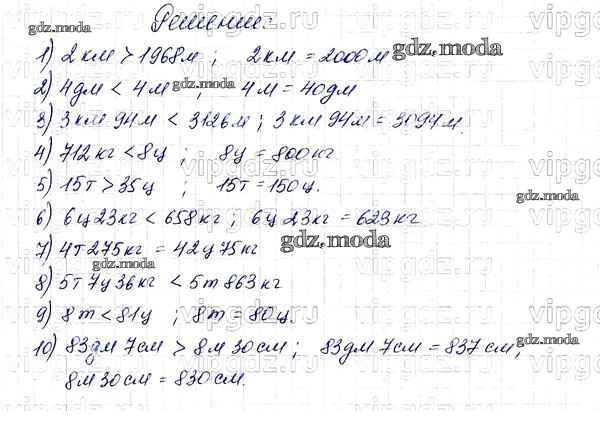 Решение:
gdz.moda
1) 2 км > 1968 м ; 2 км = 2000 м gdz.moda
2) 4 дм < 4 м gdz.moda ; 4 м = 40 дм
3) 3 км 94 м < 3126 м ; 3 км 94 м = 3094 м.
4) 712 кг < 8 ц ; 8 ц = 800 кг
5) 15 т > 35 ц ; 15 т = 150 ц. gdz.moda
6) 6 ц 23 кг < 658 кг ; 6 ц 23 кг = 623 кг
7) 4 т 275 кг = 42 ц 75 кг gdz.moda
gdz.moda
8) 5 т 7 ц 36 кг < 5 т 863 кг
9) 8 т < 81 ц ; 8 т = 80 ц.
10) 83 дм 7 см > 8 м 30 см ; 83 дм 7 см = 837 см, gdz.moda
8 м 30 см = 830 см.
vipgdz.ru